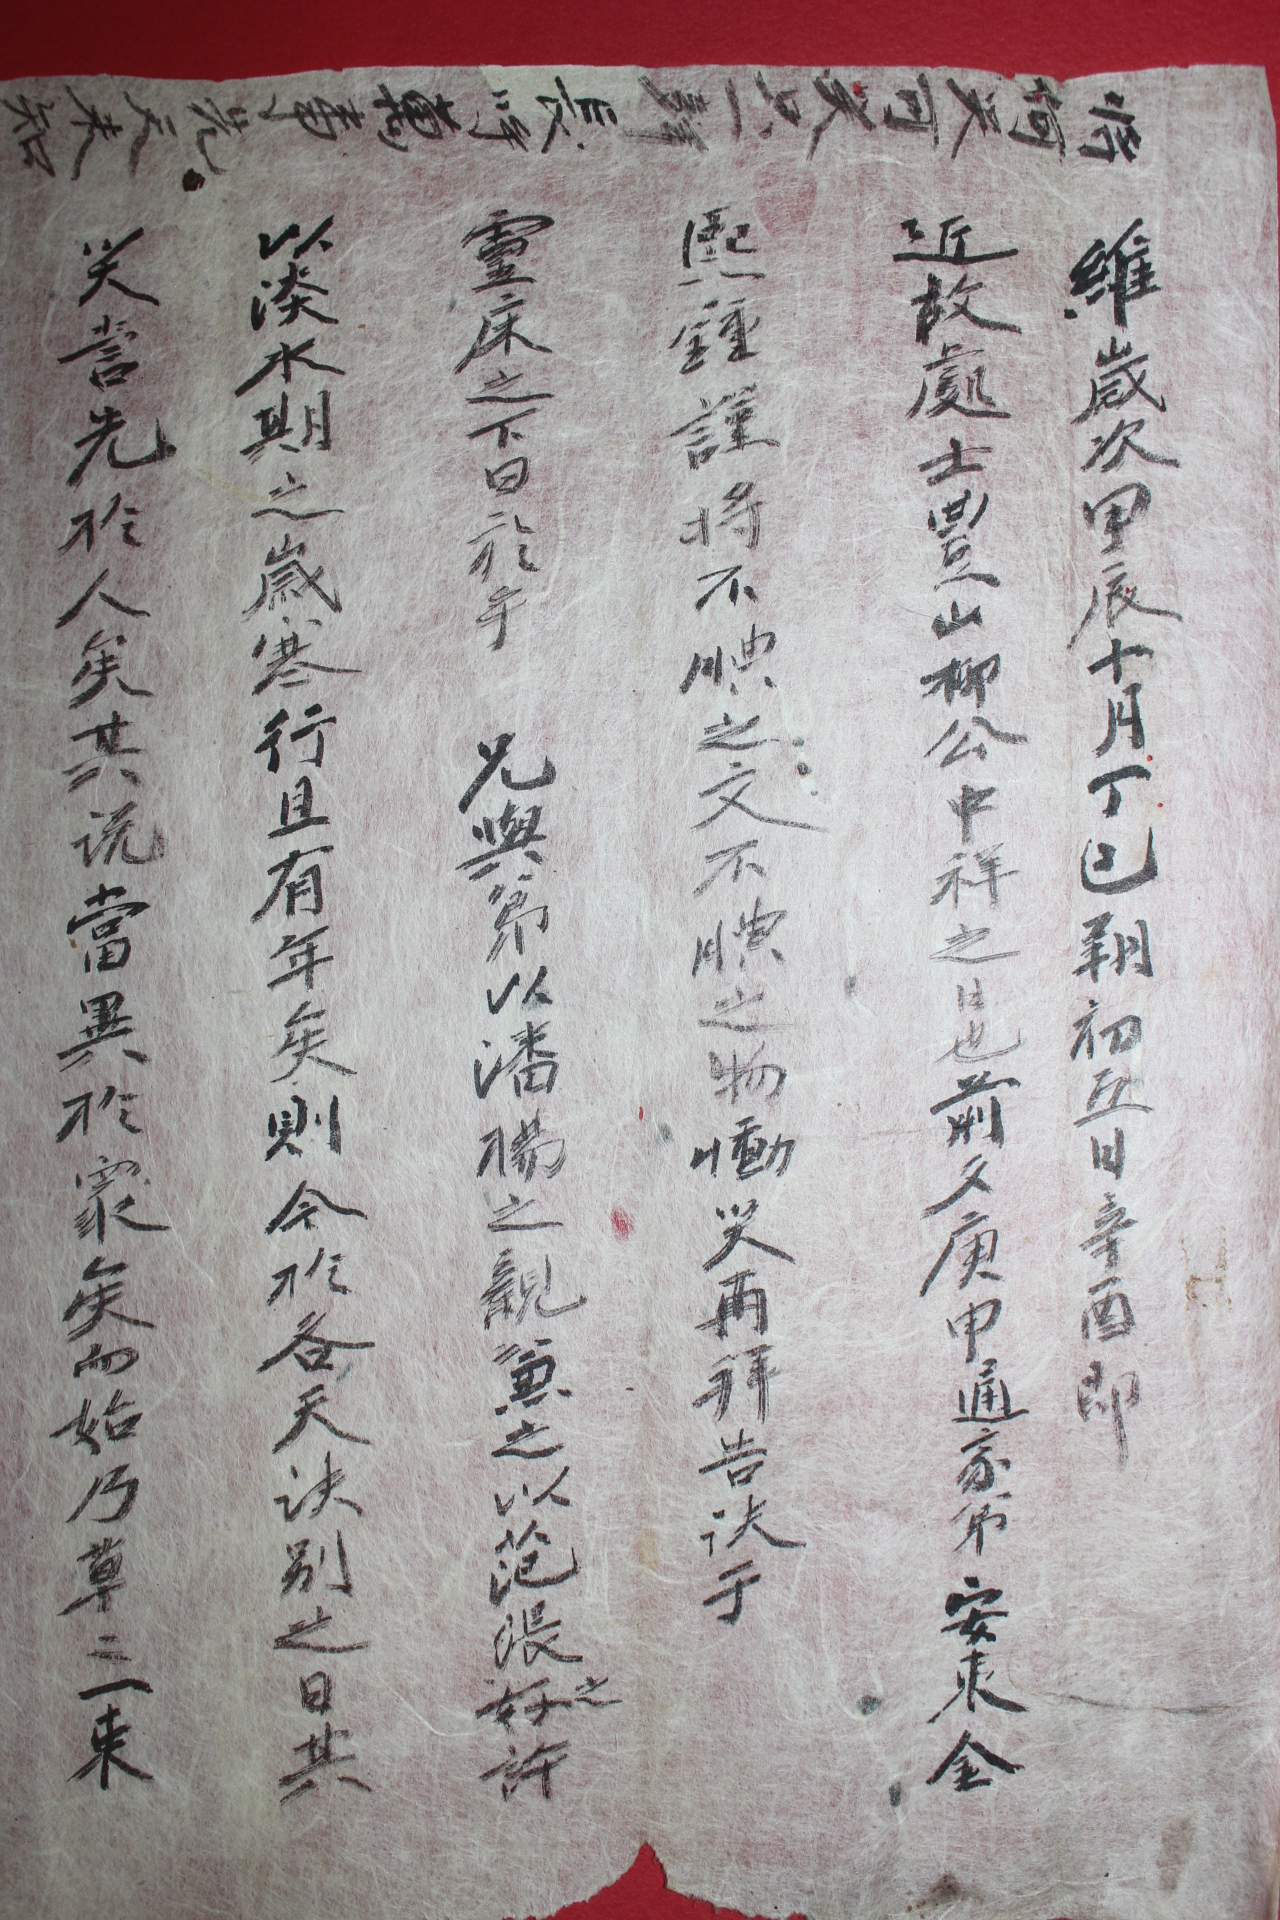 維歲次甲辰十月丁巳朔初五日辛酉即
近故處士豊山柳公中祥之日也前夕庚申通家弟安東金
熙鍾謹將不腆之文不腆之物慟哭再拜告訣于
靈床之下曰於乎 兄與弟以潘楊之親兼之以范張之好許
以淡水期之歲寒行且有年矣則今於各天訣別之日共
哭嘗先於人矣其說當異於衆矣而始乃草三束